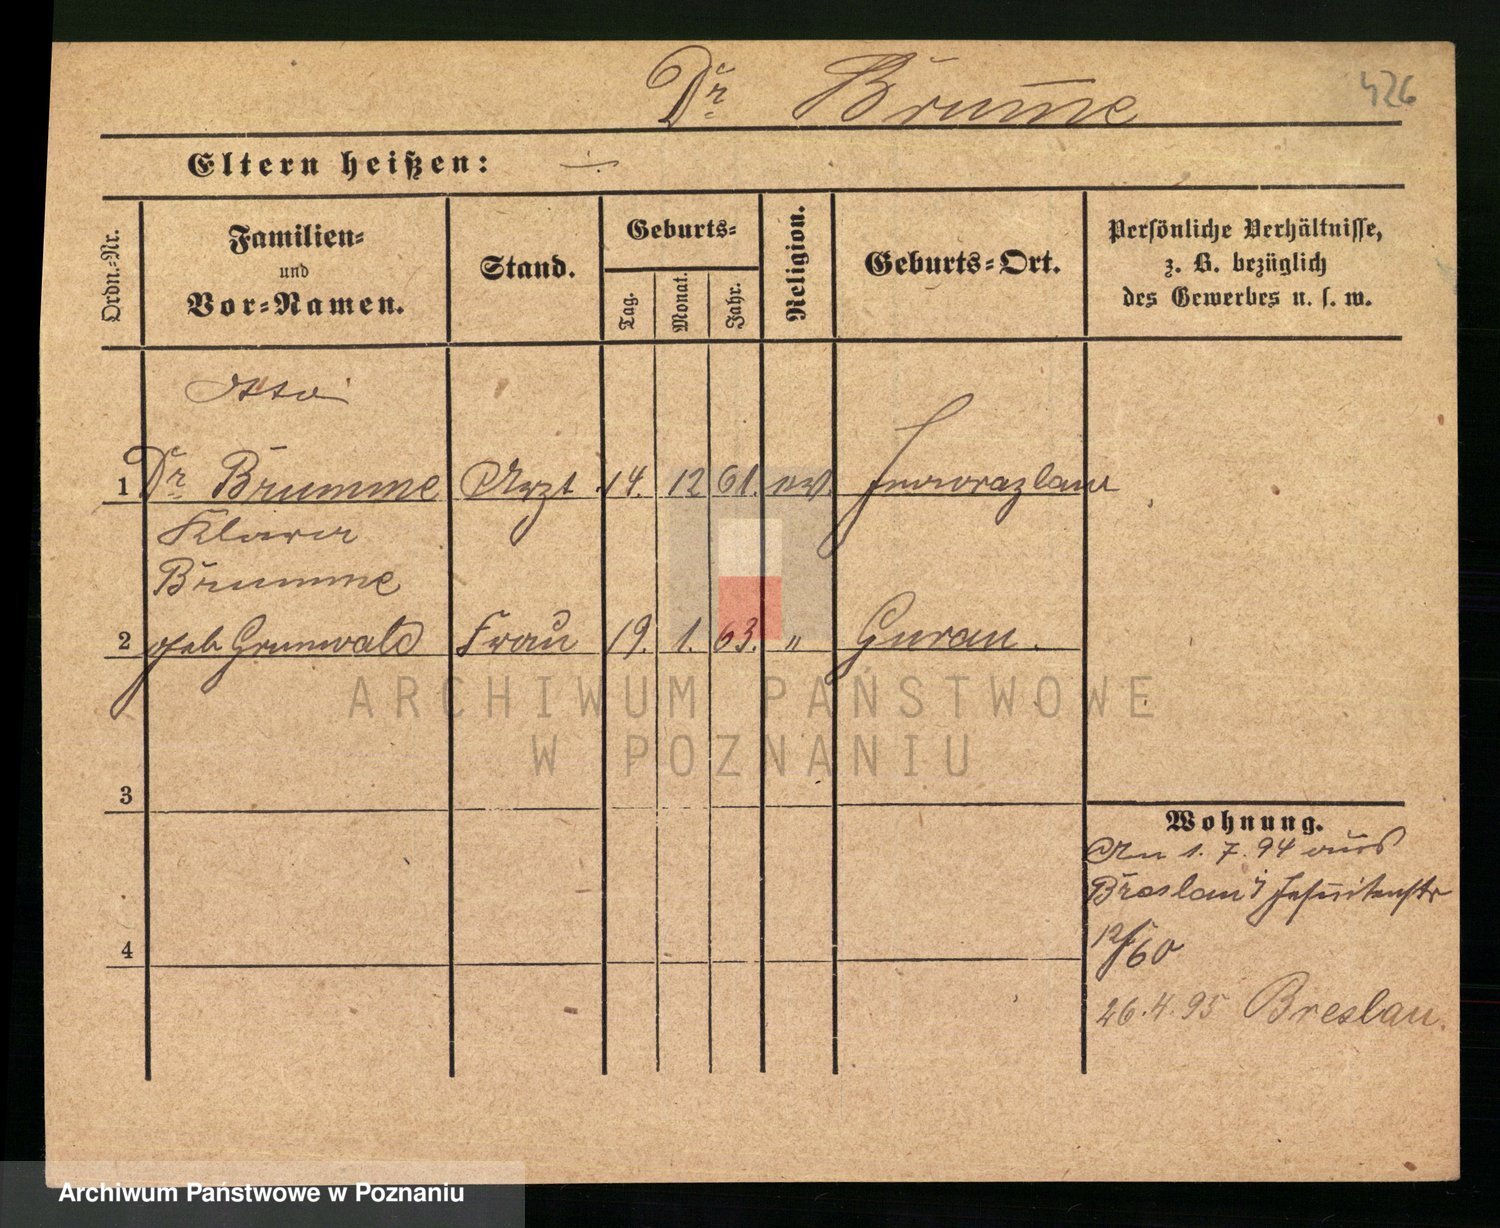 Dr Brum̄e
426
Eltern heißen: ÷
Ordn.-Nr.
Familien-
und
Vor-Namen.
Stand.
Geburts-
Tag.
Monat.
Jahr.
Religion.
Geburts-Ort.
Persönliche Verhältnisse,
z. B. bezüglich
des Gewerbes u. s. w.
Otto
1 Dr Brumme Arzt 14. 12 61. ev. Inowrazlaw
Klara
Brumme
2 geb Grunwald Frau 19. 1. 63. " Guran.
ARCHIWUM PAŃSTWOWE
W POZNANIU
3
Wohnung.
An 1. 7. 94 aus
Breslau Jesuitenstr
12/60
4
26.4.95 Breslau.
Archiwum Państwowe w Poznaniu